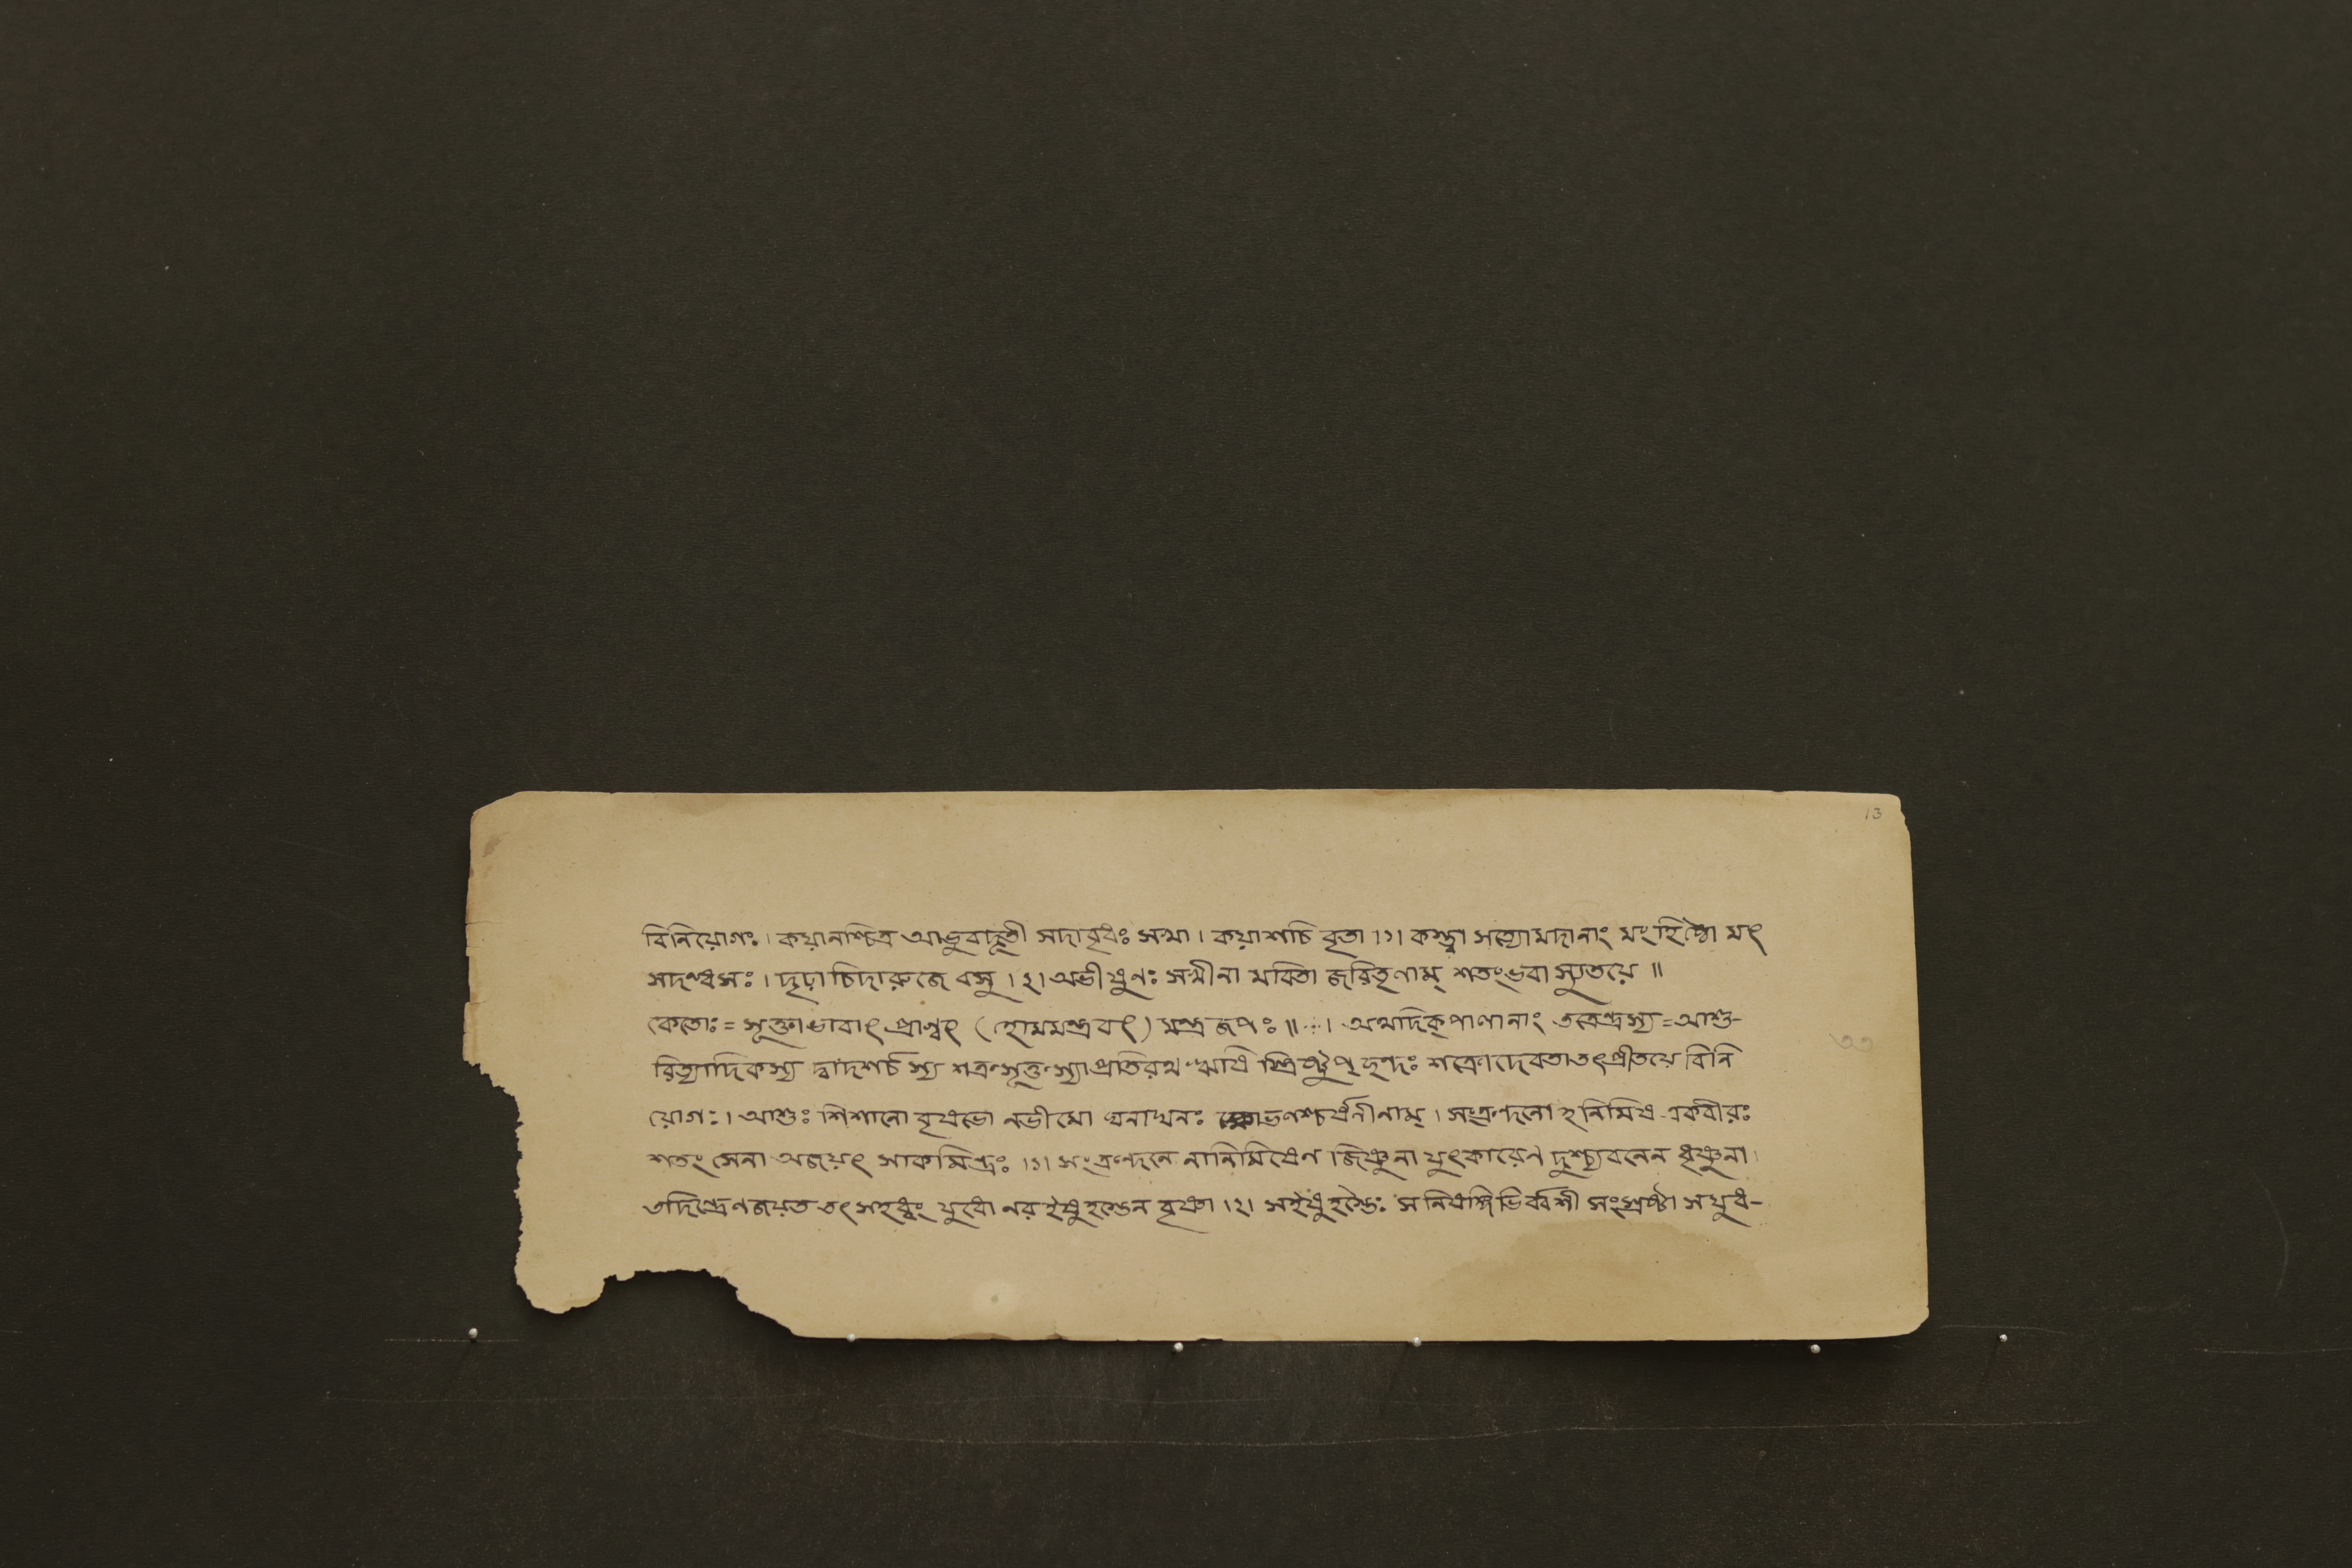 13
বিনিয়োগঃ। কয়ানশ্চিত্র আভুবাদূতী সদাবৃধঃ সখা। কয়াশচি বৃতা ।১। কস্ত্বা সত্যোমদানাং মংহিষ্ঠো মৎ
সদন্ধসঃ। দৃঢ়া চিদারুজে বসু ।২। অভীষুণঃ সখীনা মবিতা জরিতৃণাম্ শতংভবা স্যুতয়ে ॥
কেতোঃ = সূক্তাভাবাৎ প্রাগ্বৎ (হোমমন্ত্রবৎ) মন্ত্র জপঃ ॥ ∴ । অথদিক্পালানাং তত্রেন্দ্রস্য = আশু-
রিত্যাদিকস্য দ্বাদশর্চ স্য শত্রুসূক্তস্যাপ্রতিরথ ঋষি স্ত্রিষ্টুপ্ ছন্দঃ শক্রোদেবতাতৎপ্রীতয়ে বিনি
৩৩
য়োগঃ। আশুঃ শিশানো বৃষভো নভীমো ঘনাঘনঃ ক্ষোভণশ্চর্ষনীনাম্। সংক্রন্দনো হনিমিষ একবীরঃ
শতং সেনা অজয়ৎ সাকমিন্দ্রঃ ।১। সংক্রন্দনে নানিমিষেণ জিষ্ণুনা যুৎকারেণ দুশ্চ্যবনেন ধৃষ্ণুনা।
তদিন্দ্রেণজয়ত তৎ সহধ্বং যুধো নর ইষুহস্তেন বৃষ্ণা ।২। সইষুহস্তৈঃ স নিষঙ্গিভির্বশী সংস্রষ্টা সযুধ-